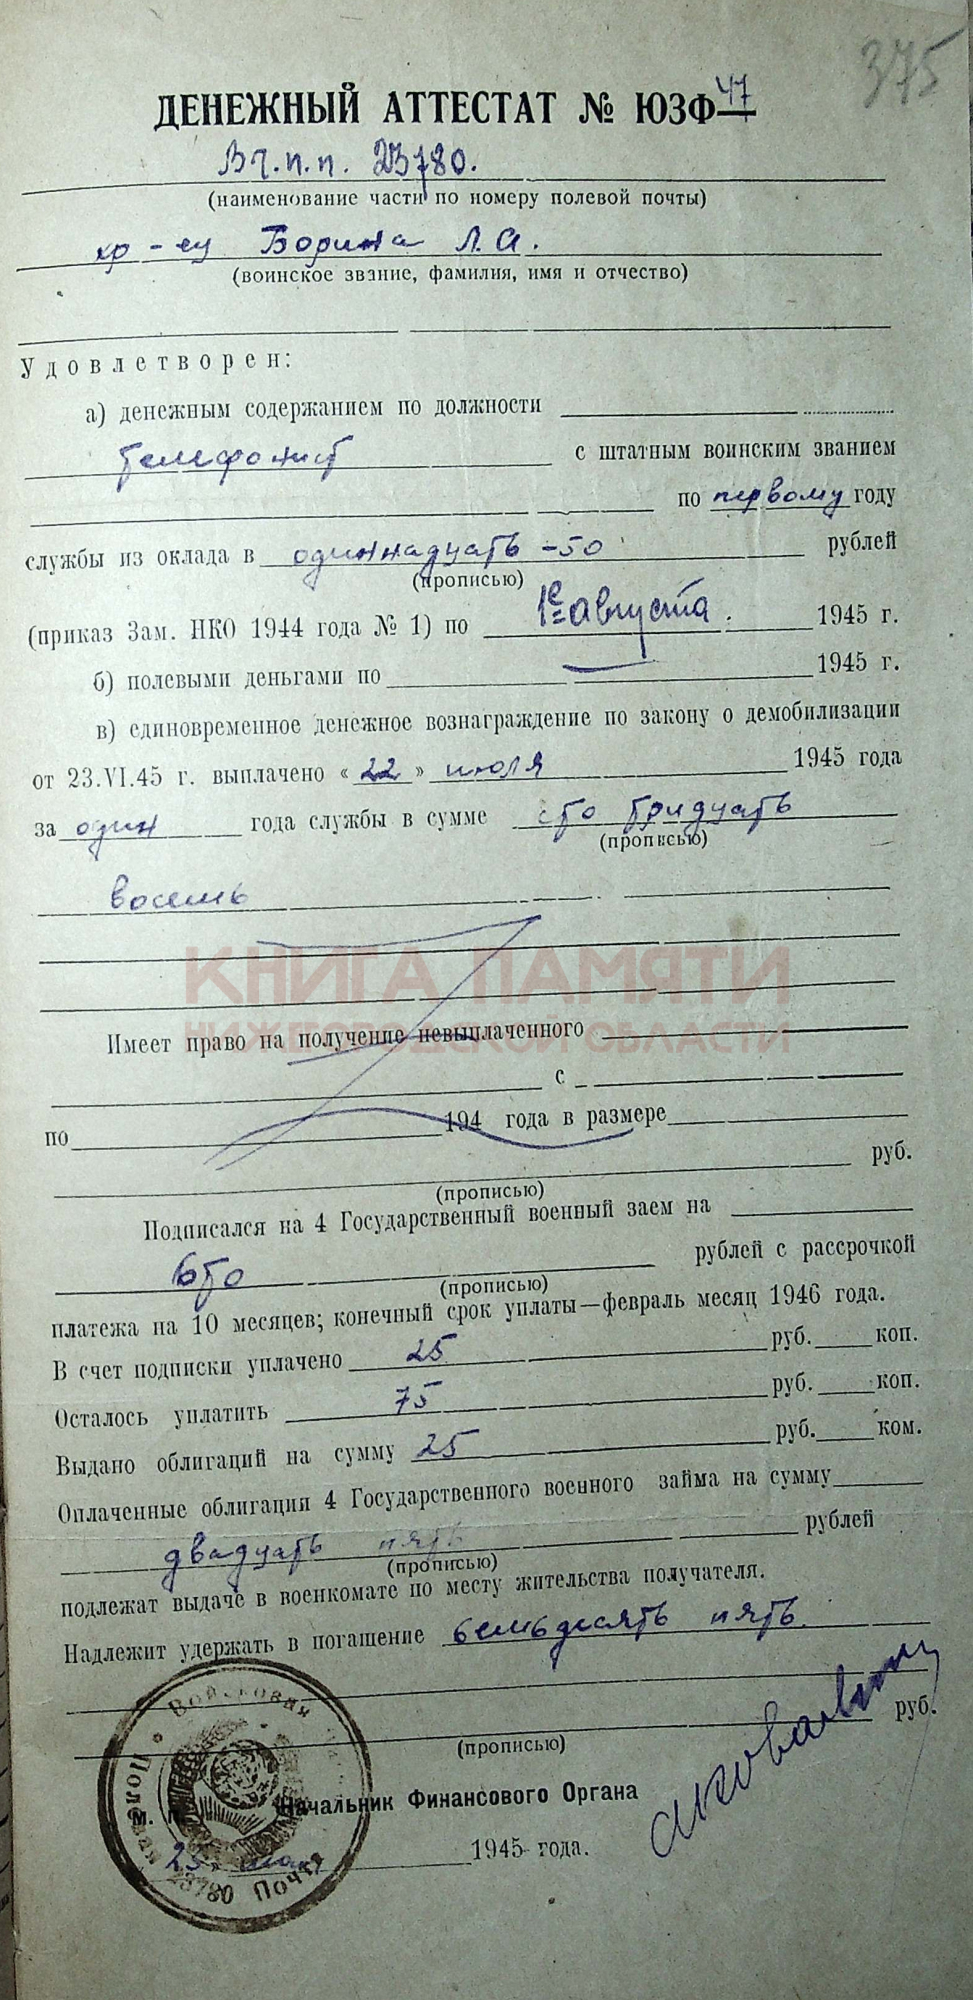 375
ДЕНЕЖНЫЙ АТТЕСТАТ № ЮЗФ 47
Вч.п.п. 23780.
(наименование части по номеру полевой почты)
кр-ец Борина Л.А.
(воинское звание, фамилия, имя и отчество)
Удовлетворен:
а) денежным содержанием по должности
телефонист с штатным воинским званием
по первому году
службы из оклада в одиннадцать -50 рублей
(прописью)
(приказ Зам. НКО 1944 года № 1) по 1е августа. 1945 г.
б) полевыми деньгами по — 1945 г.
в) единовременное денежное вознаграждение по закону о демобилизации
от 23.VI.45 г. выплачено « 22 » июля 1945 года
за один года службы в сумме сто тридцать
(прописью)
восемь
КНИГА ПАМЯТИ
НИЖЕГОРОДСКОЙ ОБЛАСТИ
Имеет право на получение невыплаченного
с
по 194 года в размере
руб.
(прописью)
Подписался на 4 Государственный военный заем на
Сто рублей с рассрочкой
(прописью)
платежа на 10 месяцев; конечный срок уплаты—февраль месяц 1946 года.
В счет подписки уплачено 25 руб. коп.
Осталось уплатить 75 руб. коп.
Выдано облигаций на сумму 25 руб. ком.
Оплаченные облигации 4 Государственного военного займа на сумму
двадцать пять рублей
(прописью)
подлежат выдаче в военкомате по месту жительства получателя.
Надлежит удержать в погашение семьдесять пять.
руб.
(прописью)
Войсковая
Полевая
23780 Почта
М.
Начальник Финансового Органа
25. 1945 года.